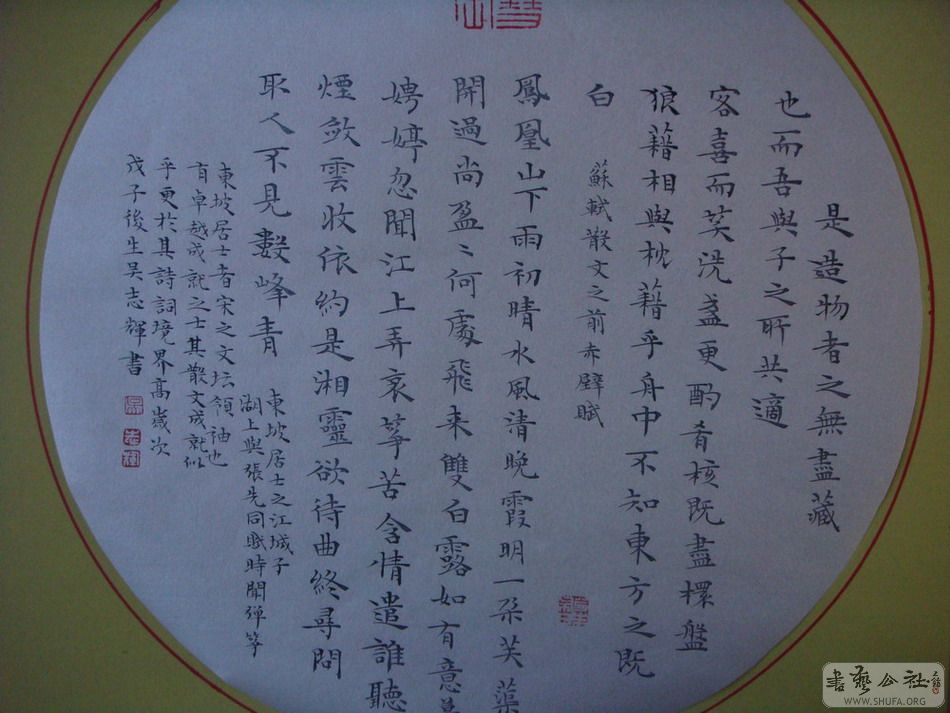 是造物者之無盡藏
也而吾與子之所共適
客喜而笑洗盏更酌肴核既盡盤
狼藉相與枕藉乎舟中不知東方之既
白
蘇軾散文之前赤壁賦
鳳凰山下雨初晴水風清晚霞明一朵芙蕖
開過尚盈〻何處飛来雙白露如有意
娉婷忽聞江上弄哀筝苦含情遣誰聽
煙斂雲收依約是湘靈欲待曲終尋問
取人不見數峰青
東坡居士之江城子
湖上與張先同賦時聞弹筝
東坡居士者宋之文坛領袖也
有卓越成就之士其散文成就似
乎更於其詩詞境界高歲次
戊子後生吴志輝書
書藝公社
WWW.SHUFA.ORG